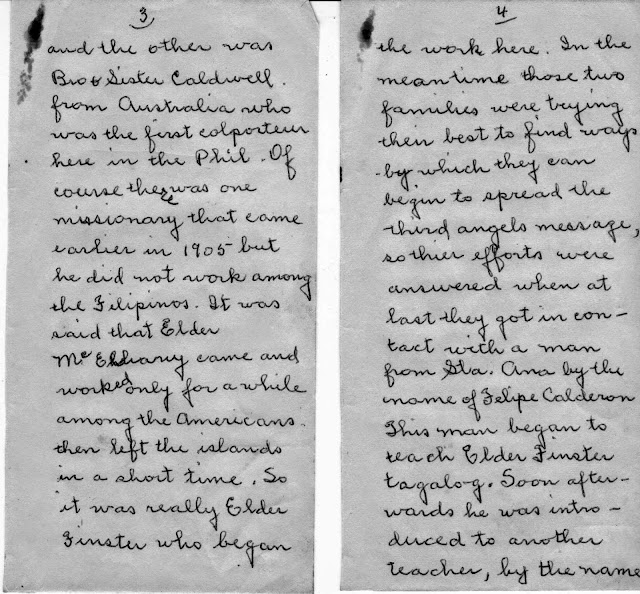 3
and the other was
Bro & Sister Caldwell.
from Australia who
was the first colporteur
here in the Phil. Of
course there was one
missionary that came
earlier in 1905 but
he did not work among
the Filipinos. It was
said that Elder
Mc Elhany came and
worked only for a while
among the Americans.
then left the islands
in a short time. So
it was really Elder
Finster who began
4
the work here. In the
meantime those two
families were trying
their best to find ways
by which they can
begin to spread the
third angels message,
so thier efforts were
answered when at
last they got in con-
tact with a man
from Sta. Ana by the
name of Felipe Calderon
This man began to
teach Elder Finster
tagalog. Soon after-
wards he was intro-
duced to another
teacher, by the name